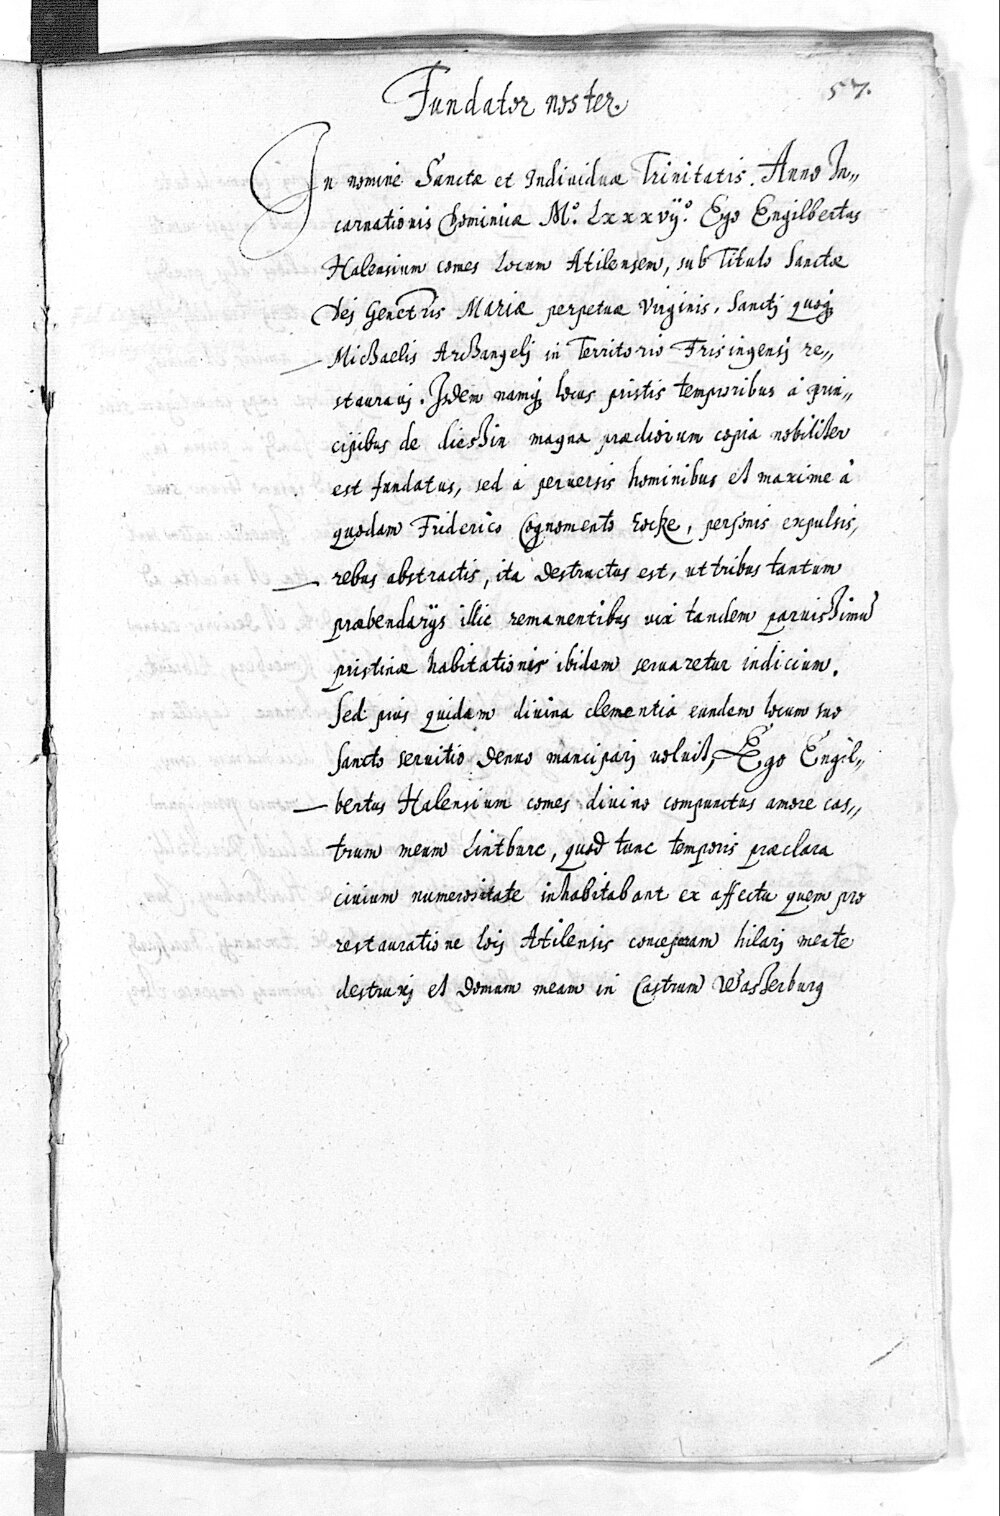 Fundator noster.
57.
In nomine Sanctæ et Individuæ Trinitatis. Anno In„
carnationis Dominicæ M.º Lxxxvÿ.º Ego Engilbertus
Halensium comes locum Atilensem, sub Titulo Sanctæ
Dej Genetricis Mariæ perpetuæ Virginis, Sanctj quoq;
Michaelis Archangelj in Territorio Frisingensj re„
stauravj. Isdem namq; locus pristis temporibus á prin„
cipibus de diessin magna prædiorum copia nobiliter
est fundatus, sed á peruersis hominibus et maxime á
quodam Friderico Cognomento Rocke, personis expulsis,
rebus abstractis, ita destructus est, ut tribus tantum
præbendarÿs illic remanentibus vix tandem paruissimũ
pristinæ habitationis ibidem seruaretur indicium.
Sed pius quidam diuina clementia eundem locum suo
Sancto seruitio denuo manciparj uoluit, Ego Engil„
bertus Halensium comes diuino compunctus amore cas„
trum meum Lintburc, quod tunc temporis præclara
ciuium numerositate inhabitabant ex affectu quem pro
restauratione locj Atilensis conceperam hilarj mente
destruxj et domum meam in Castrum Wasserburg